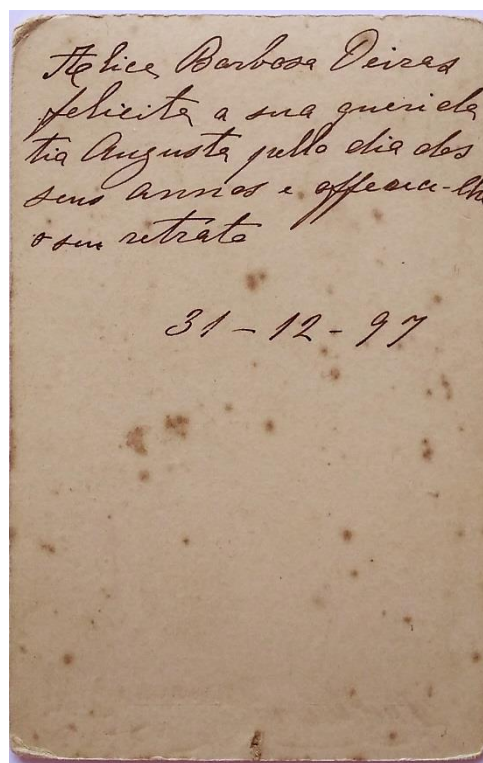 Alice Barbosa Veiras
felicita a sua querida
tia Augusta pello dia dos
seus annos e offerece-lhe
o seu retrato
31-12-97